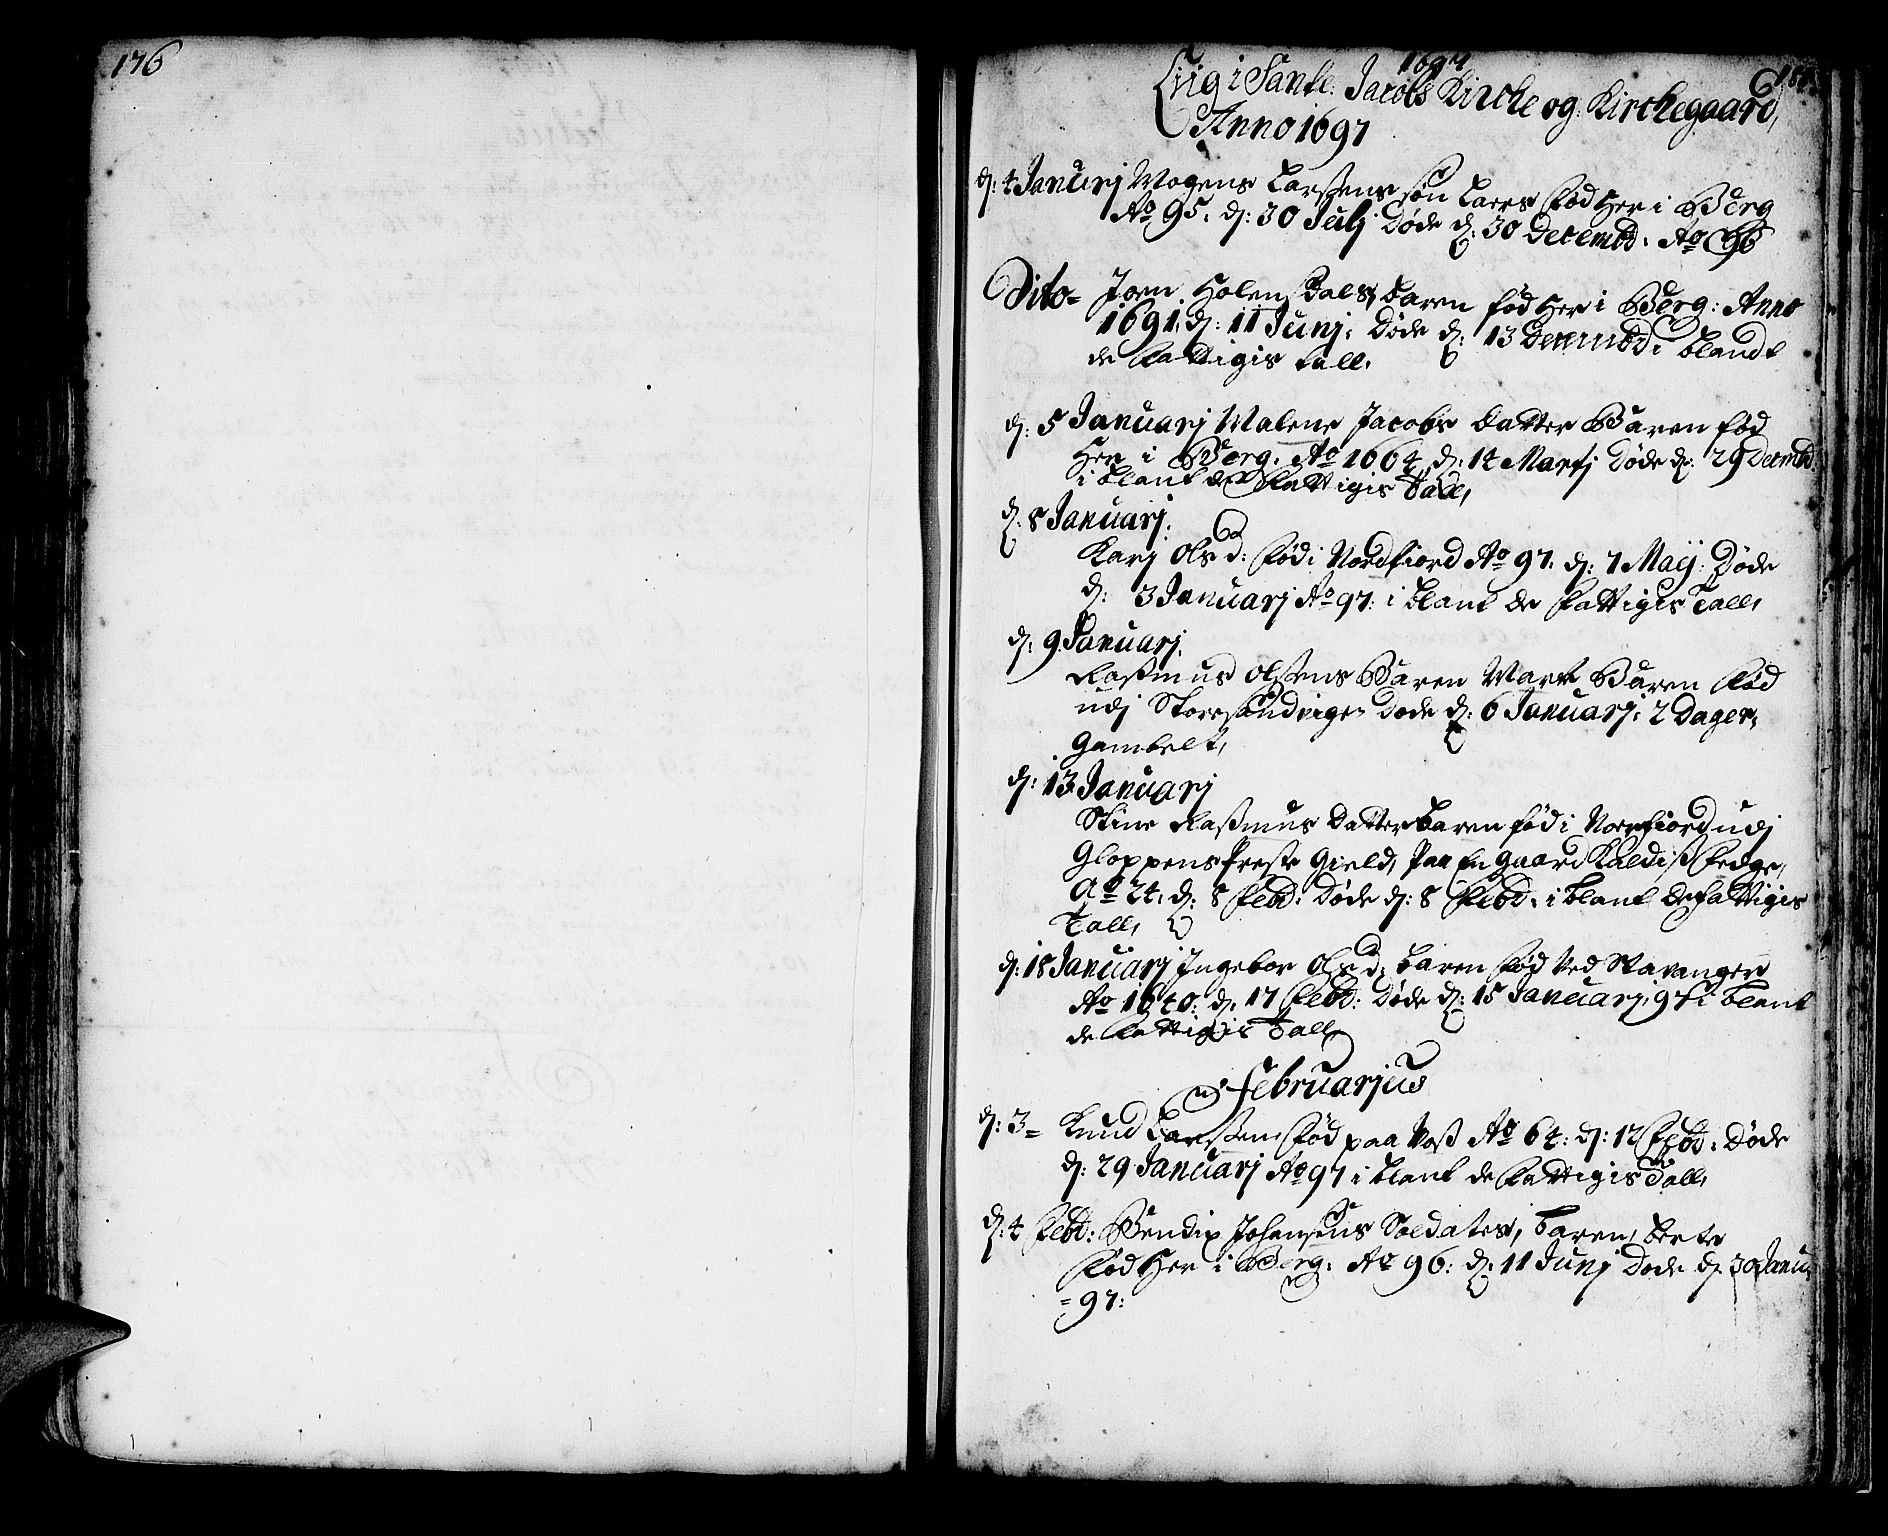 176
1697
Liig i Sante: Jacobs Kircke og Kirckegaard,
Anno 1697
d: 4 Januarj Mogens Larssens søn Laers fød Her i Berg
Ao 95. d: 30 Julj Døde d: 30 Decembd: Ao 96
Dito= Joen Holen baren fød Her i Berg: Anno
1691, d: 11 Junj: Døde d: 13 Decembd: i blandt
de fattigis tall.
d: 5 Januarj Malene Jacobs datter Baren fød
Her i Berg. Ao 1664. d: 14 Martj Døde d: 29 Decmbd
i blant de fattigis Tall,
d: 8 Januarj.
Karj Olsd: fød i Nordfiord Ao 97: d: 7 Maij: Døde
d: 3 Januarj Ao 97: i blant de fattigis Tall,
d: 9 Januarj.
Rassmus Olssens Baren Baren fød
udj Storesandvigen Døde d: 6 Januarj: 2 Dager,
gambelt,
d: 13 Januarj
Stine Rassmus datter baren fød i Norfiord udj
Gloppens preste gield, paa En gaard Kaldiss
Ao 24, d: 8 febd: Døde d: 8 febd: i blant de fattigis
Tall,
d: 18 Januarj Ingebor Olsd: baren fød Ved Stavanger
Ao 1640: d. 17 febd: Døde d: 15 Januarj, 97 i blant
de fattigis Tall
Februarjus
d: 3= Knud Larssen fød paa Voss Ao 64: d: 12 febd: Døde
d: 29 Januarj Ao 97 i blant de fattigis Tall,
d: 4 febd: Bendix Johansens Soldates, baren, berte
fød Her i Berg: Ao 96: d: 11 Junj Døde d: 30 Janu
=97: